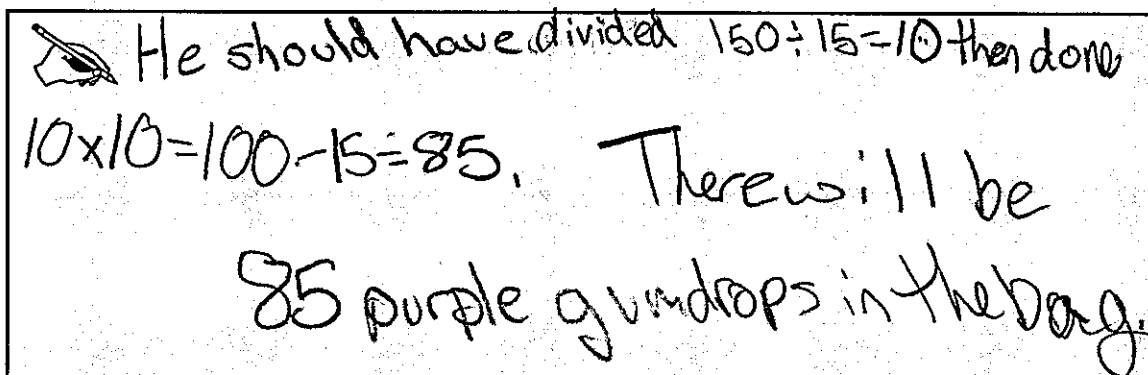 He should have divided 150÷15=10 then done
10x10=100-15=85. There will be
85 purple gumdrops in the bag.